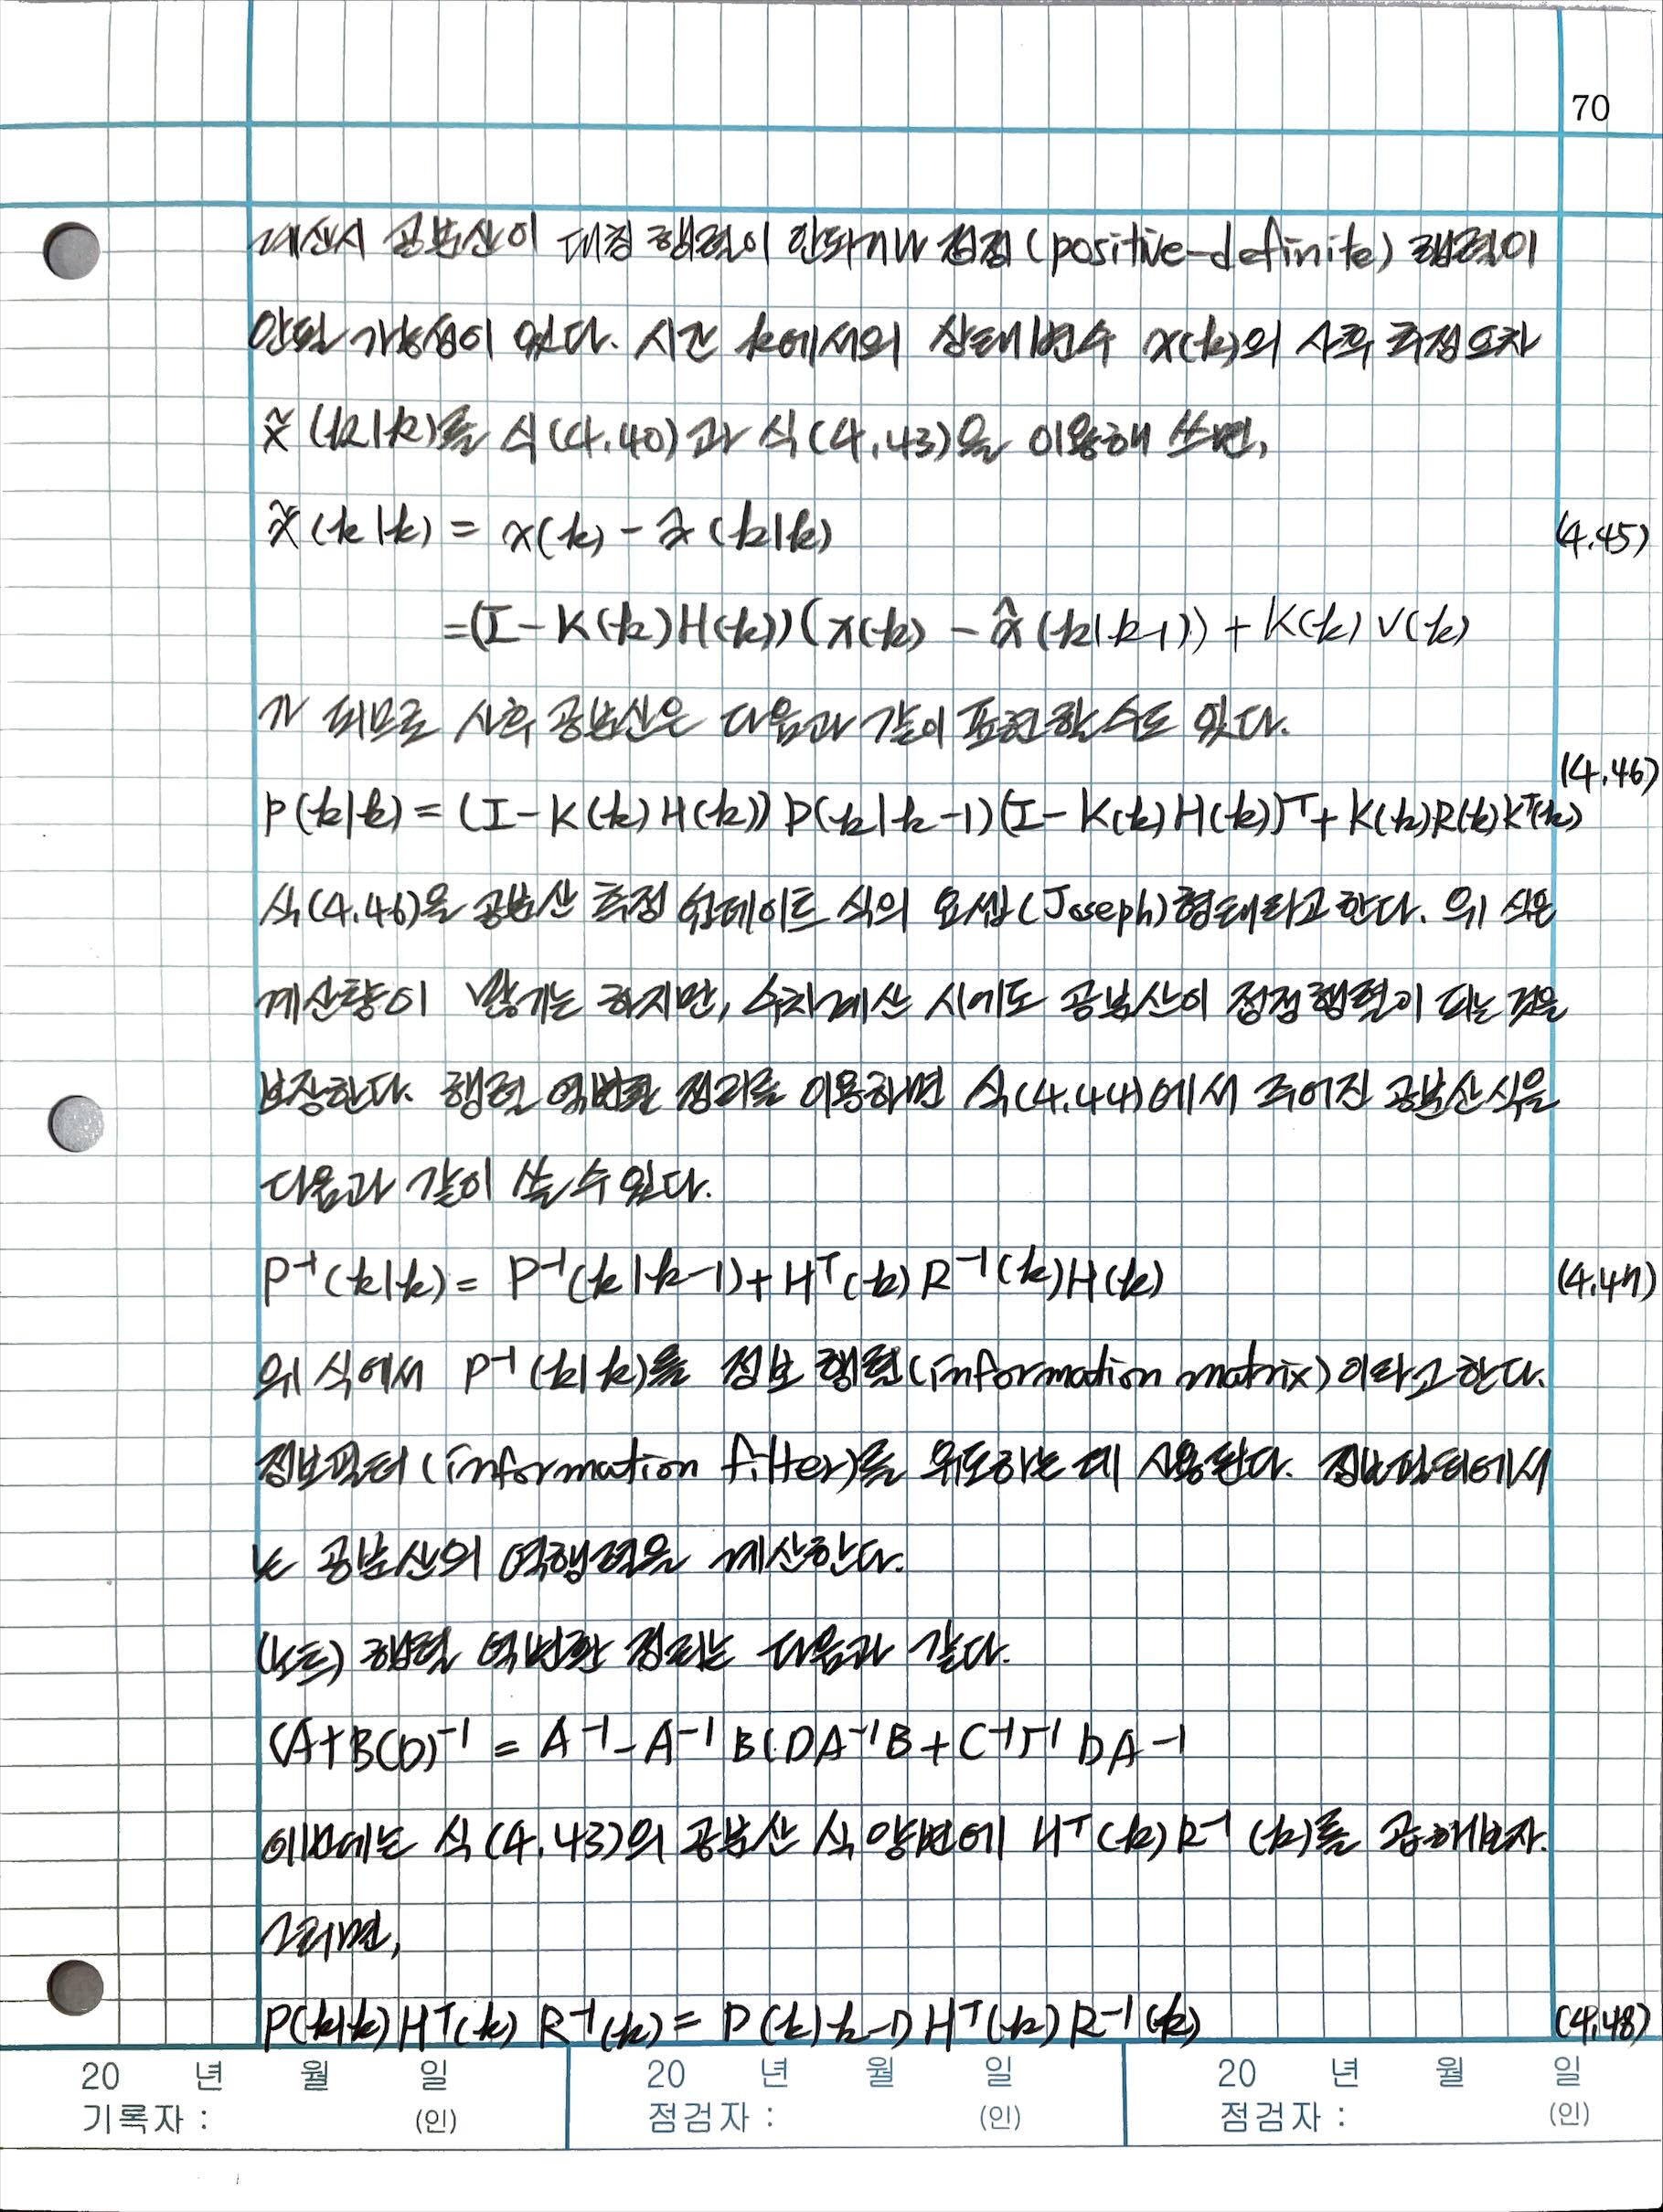 70
계산시 공분산이 대칭 행렬이 안되거나 정정(positive-definite) 행렬이
안될 가능성이 있다. 시간 k에서의 상태변수 x(k)의 사후 추정오차
x̃(k|k)를 식(4.40)과 식(4.43)을 이용해 쓰면,
x̃(k|k) = x(k) - x̂(k|k) (4.45)
=(I-K(k)H(k))(x(k) - x̂(k|k-1)) + K(k)v(k)
가 되므로 사후 공분산은 다음과 같이 표현할 수도 있다.
(4.46)
P(k|k) = (I-K(k)H(k))P(k|k-1)(I-K(k)H(k))ᵀ+K(k)R(k)Kᵀ(k)
식(4.46)을 공분산 측정 업데이트 식의 요셉(Joseph)형태라고 한다. 위 식은
계산량이 많기는 하지만, 수치계산 시에도 공분산이 정정행렬이 되는 것을
보장한다. 행렬 역변환 정리를 이용하면 식(4.44)에서 주어진 공분산식을
다음과 같이 쓸 수 있다.
P⁻¹(k|k) = P⁻¹(k|k-1)+Hᵀ(k)R⁻¹(k)H(k) (4.47)
위 식에서 P⁻¹(k|k)를 정보 행렬(information matrix)이라고 한다.
정보필터(information filter)를 유도하는 데 사용된다. 정보필터에서
는 공분산의 역행렬을 계산한다.
(노트) 행렬 역변환 정리는 다음과 같다.
(A+BCD)⁻¹ = A⁻¹-A⁻¹B(DA⁻¹B+C⁻¹)⁻¹DA⁻¹
이번에는 식(4.43)의 공분산 식 양변에 Hᵀ(k)R⁻¹(k)를 곱해보자.
그러면,
P(k|k)Hᵀ(k)R⁻¹(k) = P(k|k-1)Hᵀ(k)R⁻¹(k) (4.48)
20 년 월 일 20 년 월 일 20 년 월 일
기록자 : (인) 점검자 : (인) 점검자 : (인)